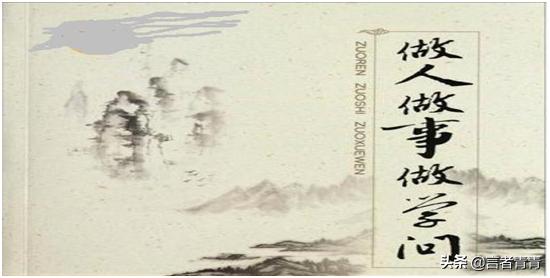 做人做事做学问
ZUOREN ZUOSHI ZUOXUEWEN
头条 @言者青青